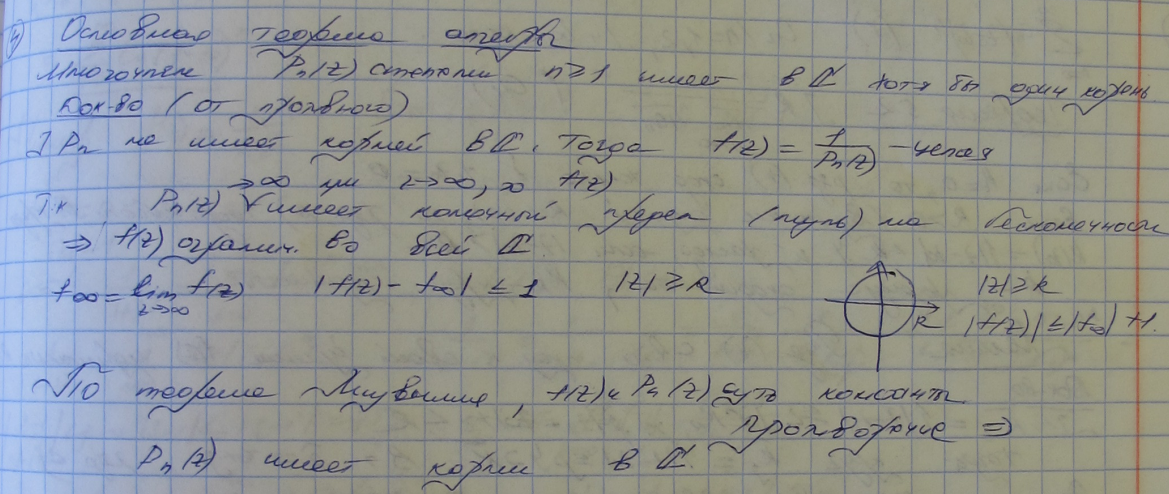 4) Основная теорема алгебры
Многочлен Pₙ(z) степени n≥1 имеет в ℂ хотя бы один корень
Док-во (от противного)
] Pₙ не имеет корней в ℂ. Тогда f(z) = 1/Pₙ(z) - целая
Т.к. Pₙ(z) →∞ при z→∞, то f(z) имеет конечный предел (нуль) на бесконечности
⇒ f(z) огранич. во всей ℂ.
f∞ = lim z→∞ f(z) |f(z) - f∞| ≤ 1 |z| ≥ R
R
|z| ≥ R
|f(z)| ≤ |f∞| + 1.
По теореме Лиувилля, f(z) и Pₙ(z) суть константы.
Противоречие ⇒
Pₙ(z) имеет корни в ℂ.